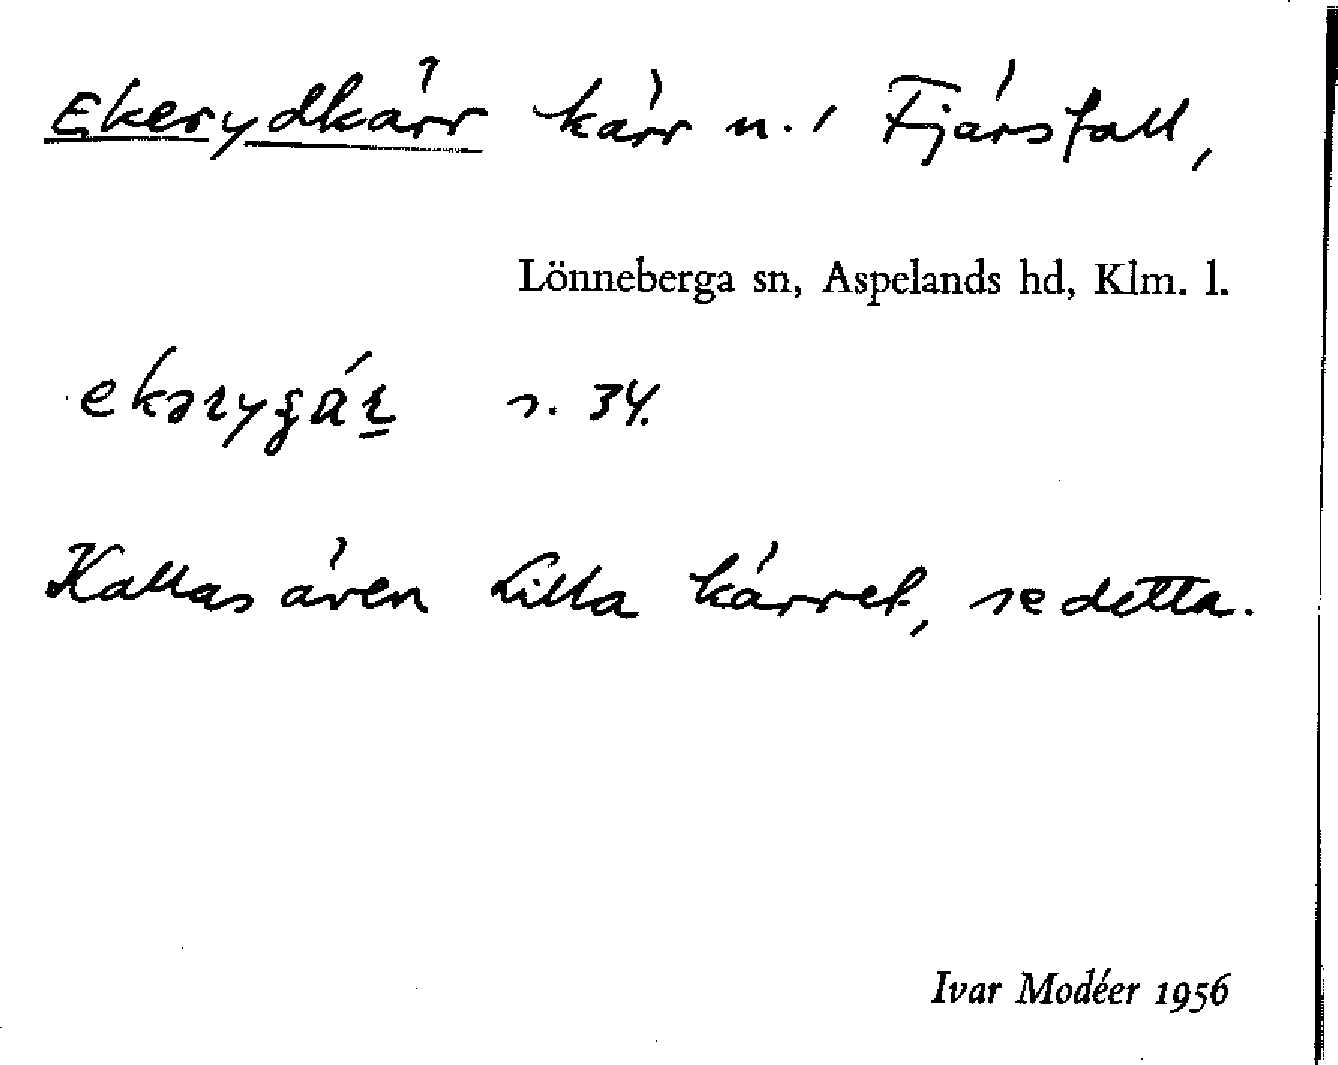 Ekerydkärr kärr n. i Fjärsfall,
Lönneberga sn, Aspelands hd, Klm. l.
s. 34.
Kallas även Lilla kärret, se detta.
Ivar Modéer 1956